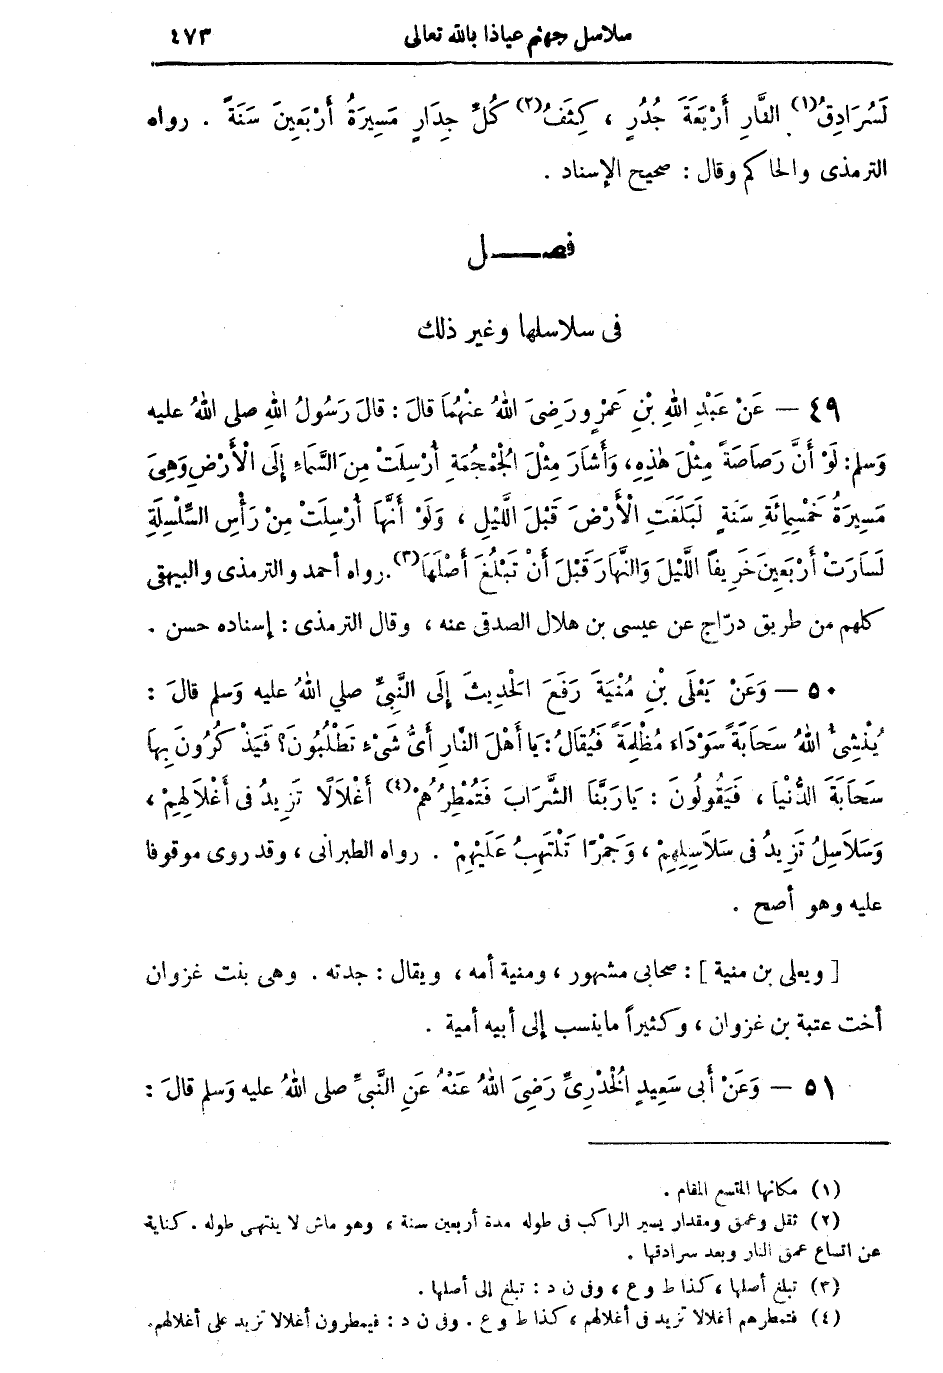 سلاسل جهنم عياذا بالله تعالى ٤٧٣
لَسُرَادِقُ(١) النَّارِ أَرْبَعَةَ جُدُرٍ ، كِثَفُ(٢) كُلِّ جِدَارٍ مَسِيرَةُ أَرْبَعِينَ سَنَةً . رواه
الترمذى والحاكم وقال : صحيح الإسناد .
فصـــــل
فى سلاسلها وغير ذلك
٤٩ — عَنْ عَبْدِ اللهِ بْنِ عَمْرٍو رَضِىَ اللهُ عنْهُمَا قالَ : قالَ رَسُولُ اللهِ صلى اللهُ عليه
وَسلم : لَوْ أَنَّ رَصَاصَةً مِثْلَ هٰذِهِ، وَأَشَارَ مِثْلَ الْجُمْجُمَةِ أُرْسِلَتْ مِنَ السَّمَاءِ إِلَى الْأَرْضِ وَهِىَ
مَسِيرَةُ خَمْسِمِائَةِ سَنَةٍ لَبَلَغَتِ الْأَرْضَ قَبْلَ اللَّيْلِ ، وَلَوْ أَنَّهَا أُرْسِلَتْ مِنْ رَأْسِ السِّلْسِلَةِ
لَسَارَتْ أَرْبَعِينَ خَرِيفاً اللَّيْلَ وَالنَّهَارَ قَبْلَ أَنْ تَبْلُغَ أَصْلَهَا(٣). رواه أحمد والترمذى والبيهقى
كلهم من طريق درّاج عن عيسى بن هلال الصدفى عنه ، وقال الترمذى : إسناده حسن .
٥٠ — وَعَنْ يَعْلَى بْنِ مُنْيَةَ رَفَعَ الْحَدِيثَ إِلَى النَّبِىِّ صلى اللهُ عليه وَسلم قالَ :
يُنْشِئُ اللهُ سَحَابَةً سَوْدَاءَ مُظْلِمَةً فَيُقَالُ : يَا أَهْلَ النَّارِ أَىُّ شَىْءٍ تَطْلُبُونَ؟ فَيَذْكُرُونَ بِهَا
سَحَابَةَ الدُّنْيَا ، فَيَقُولُونَ : يَا رَبَّنَا الشَّرَابَ فَتُمْطِرُهُمْ(٤) أَغْلَالًا تَزِيدُ فى أَغْلَالِهِمْ ،
وَسَلَاسِلُ تَزِيدُ فى سَلَاسِلِهِمْ ، وَجَمْرًا تَلْتَهِبُ عَلَيْهِمْ . رواه الطبرانى ، وقد روى موقوفا
عليه وهو أصح .
[ ويعلى بن منية ] : صحابى مشهور ، ومنية أمه ، ويقال : جدته . وهى بنت غزوان
أخت عتبة بن غزوان ، وكثيراً ما ينسب إلى أبيه أمية .
٥١ — وَعَنْ أَبِى سَعِيدٍ الْخُدْرِىِّ رَضِىَ اللهُ عَنْهُ عَنِ النَّبِىِّ صلى اللهُ عليه وَسلم قالَ :
(١) مكانها المتسع المقام .
(٢) ثقل وعمق ومقدار يسير الراكب فى طوله مدة أربعين سنة ، وهو ماش لا ينتهى طوله . كناية
عن اتساع عمق النار وبعد سرادقها .
(٣) تبلغ أصلها ، كذا ط وع ، وفى ن د : تبلغ إلى أصلها .
(٤) فتمطرهم أغلالا تزيد فى أغلالهم ، كذا ط وع . وفى ن د : فيمطرون أغلالا تزيد على أغلالهم.